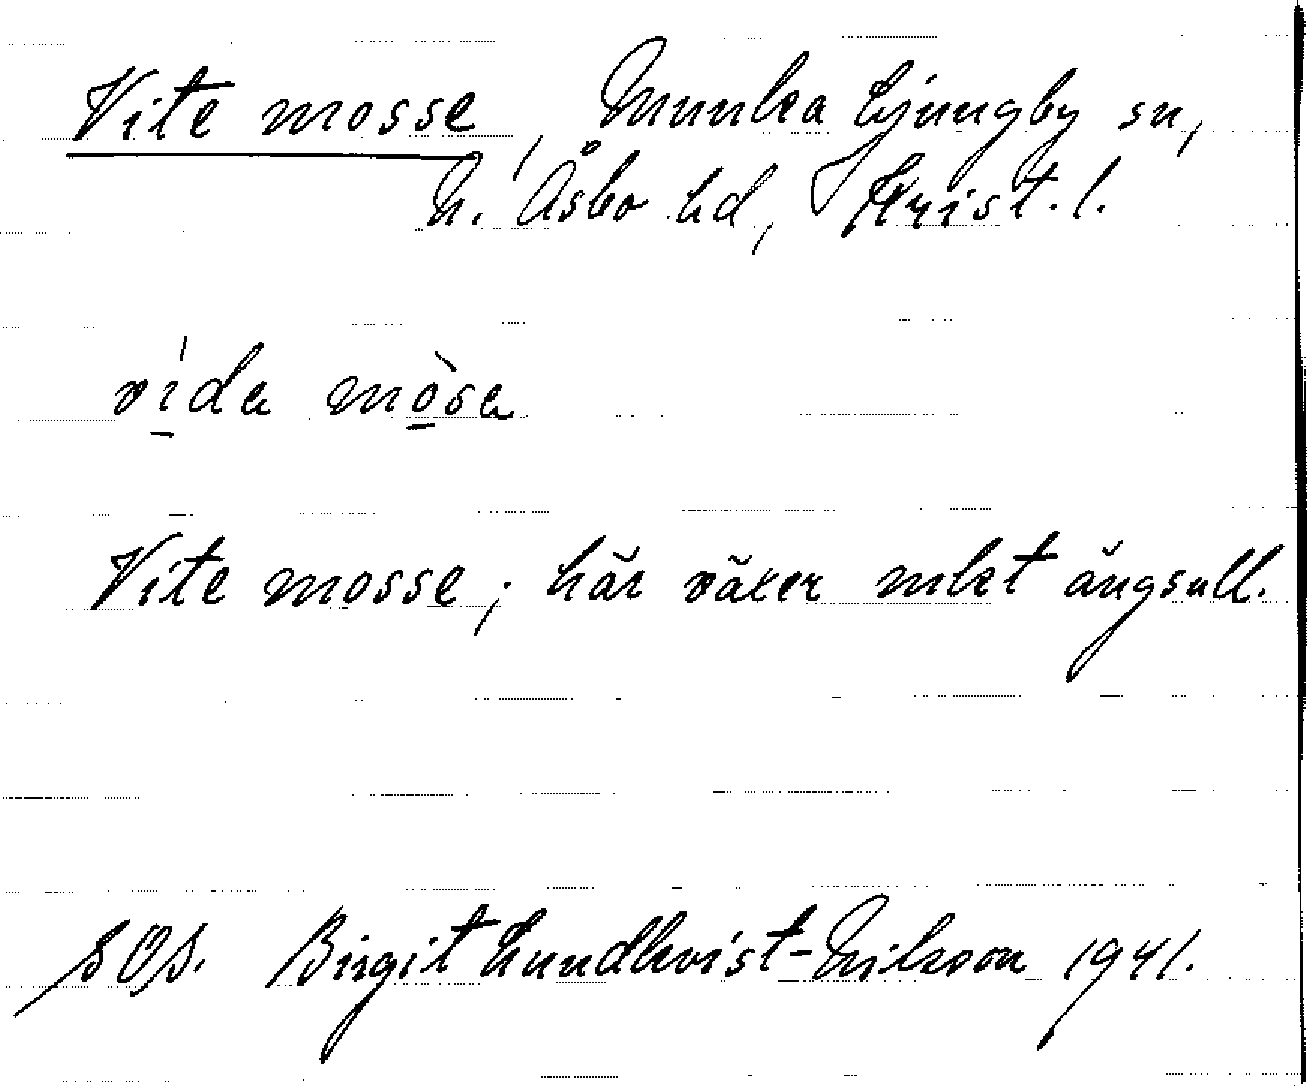 Vite mosse, Munka Ljungby sn,
N. Åsbo hd, Krist. l.
vída mòsa
Vite mosse; här växer mkt ängsull.
SOS. Birgit Lundkvist-Nilsson 1941.